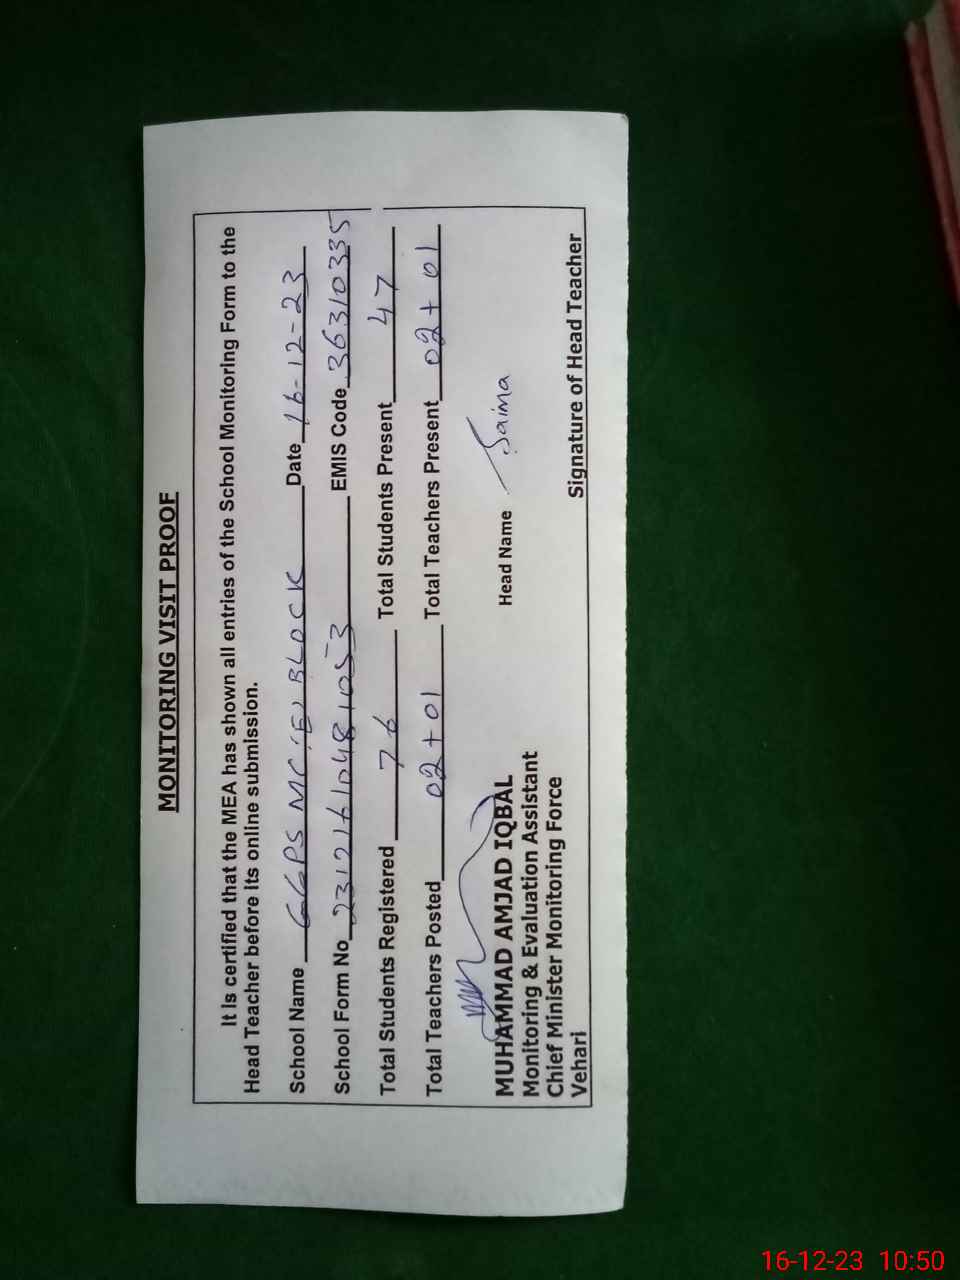 MONITORING VISIT PROOF
It is certified that the MEA has shown all entries of the School Monitoring Form to the
Head Teacher before its online submission.
School Name GGPS MC 'E' BLOCK Date 16-12-23
School Form No 23121610481053 EMIS Code 36310335
Total Students Registered 76 Total Students Present 47
Total Teachers Posted 02+01 Total Teachers Present 02+01
Head Name Saima
MUHAMMAD AMJAD IQBAL
Monitoring & Evaluation Assistant
Chief Minister Monitoring Force
Vehari
Signature of Head Teacher
16-12-23 10:50